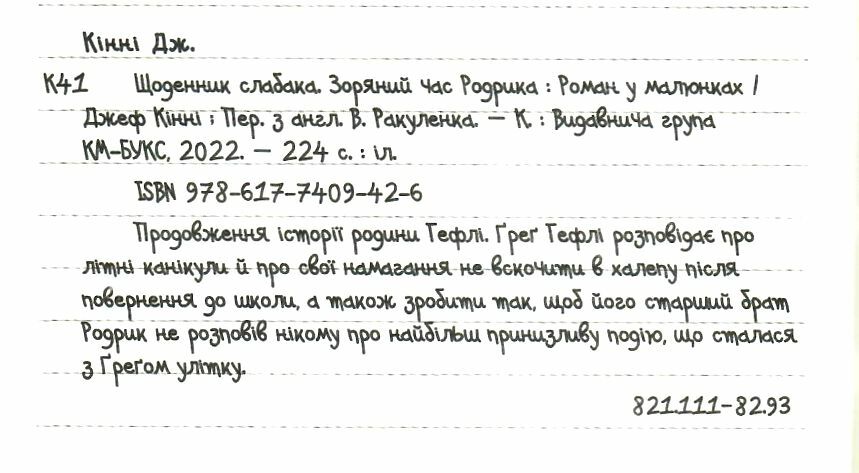 Кінні Дж.
К41 Щоденник слабака. Зоряний час Родрика : Роман у малюнках /
Джеф Кінні ; Пер. з англ. В. Ракуленка. – К. : Видавнича група
КМ-БУКС, 2022. – 224 с. : іл.
ISBN 978-617-7409-42-6
Продовження історії родини Гефлі. Ґреґ Гефлі розповідає про
літні канікули й про свої намагання не вскочити в халепу після
повернення до школи, а також зробити так, щоб його старший брат
Родрик не розповів нікому про найбільш принизливу подію, що сталася
з Ґреґом улітку.
821.111-82.93